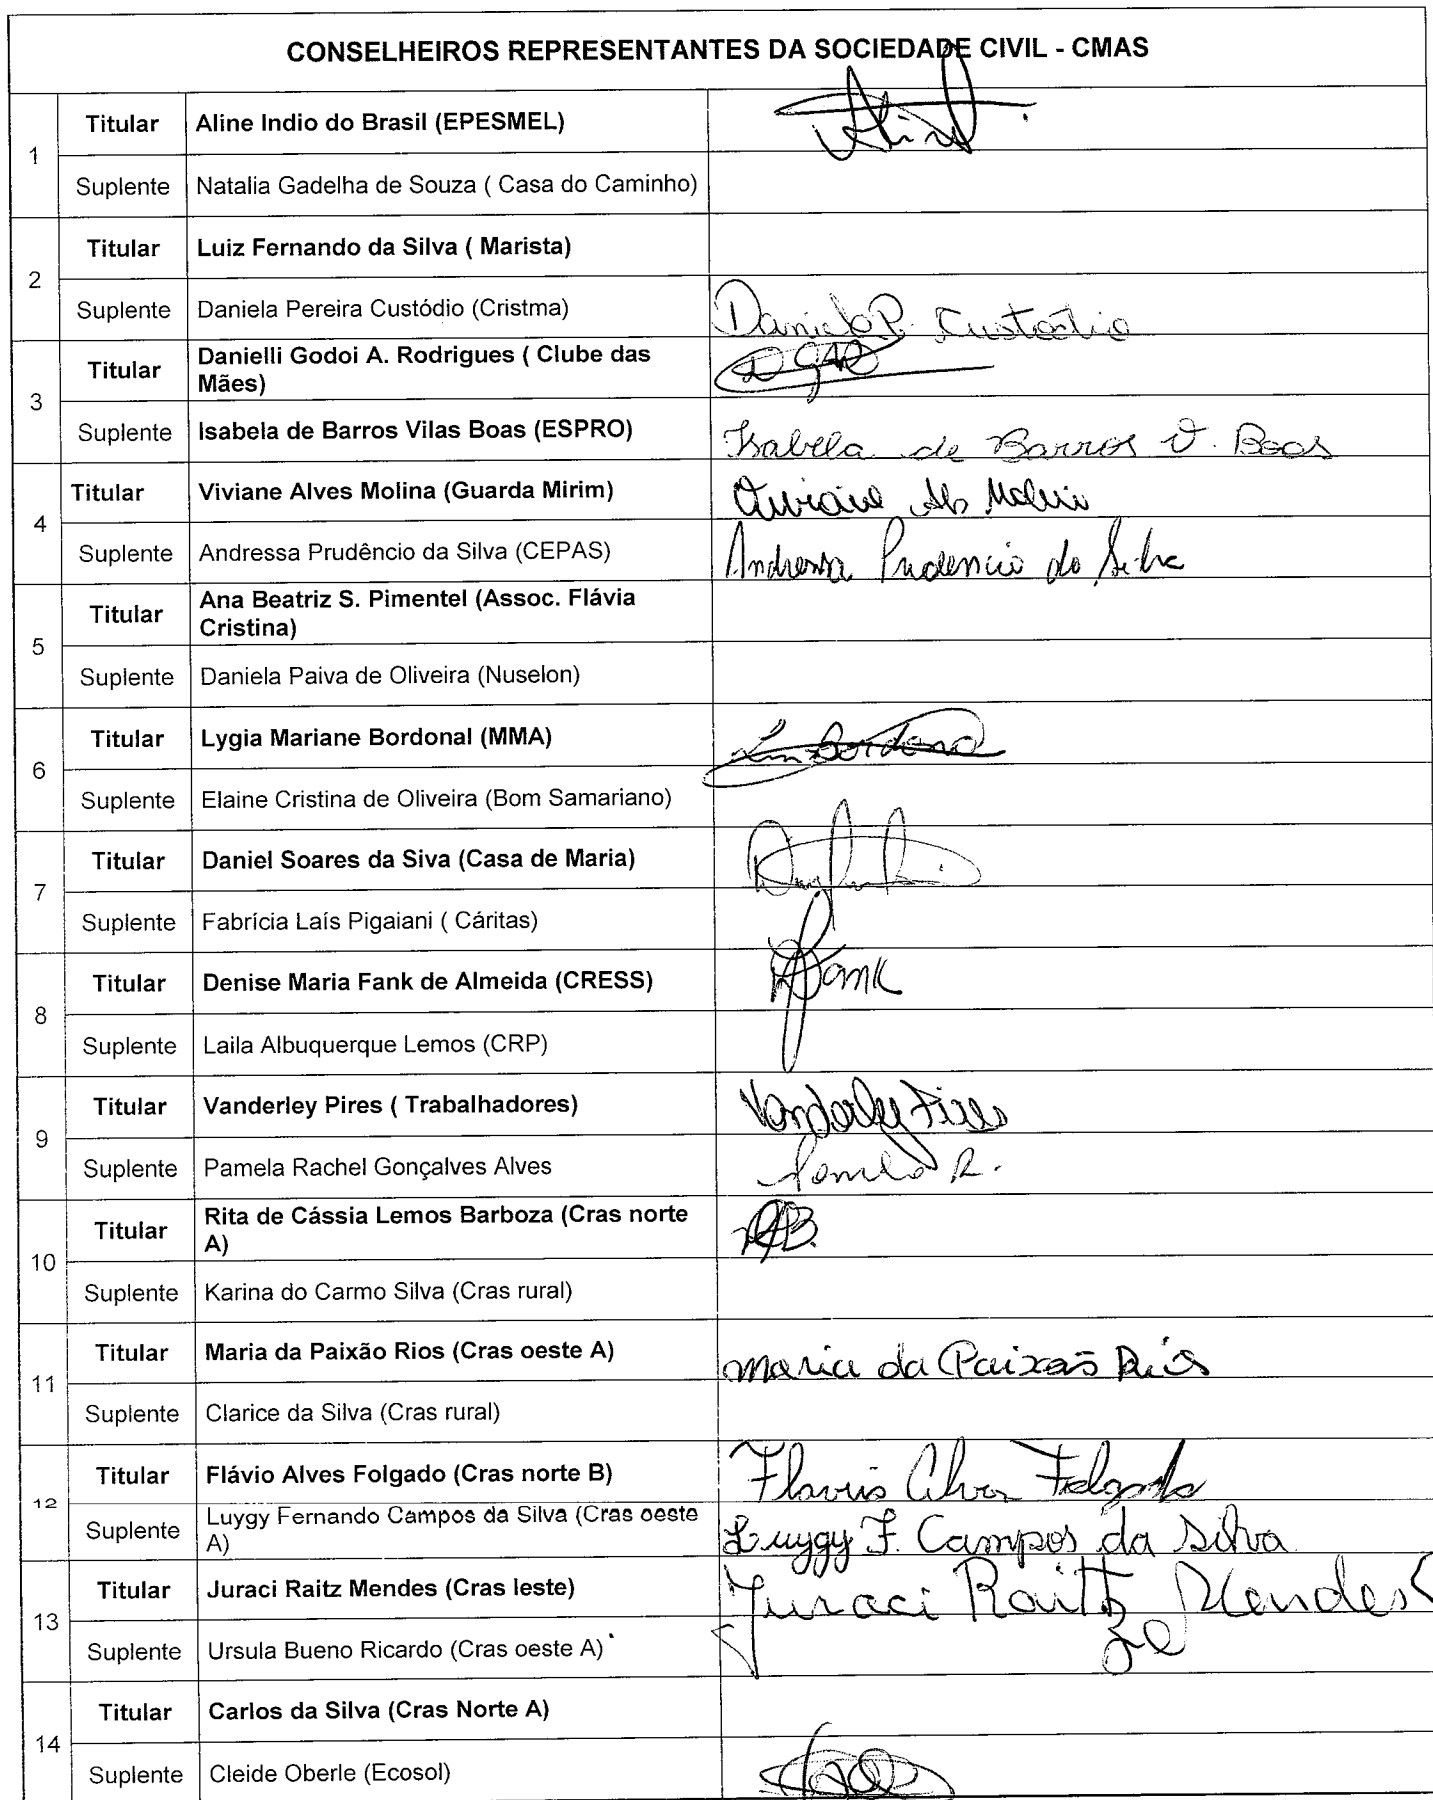 CONSELHEIROS REPRESENTANTES DA SOCIEDADE CIVIL - CMAS
1
Titular Aline Indio do Brasil (EPESMEL)
Suplente Natalia Gadelha de Souza ( Casa do Caminho)
2
Titular Luiz Fernando da Silva ( Marista)
Suplente Daniela Pereira Custódio (Cristma) Daniela P. Custódio
3
Titular Danielli Godoi A. Rodrigues ( Clube das
Mães)
Suplente Isabela de Barros Vilas Boas (ESPRO) Isabela de Barros V. Boas
4
Titular Viviane Alves Molina (Guarda Mirim) Viviane Molina
Suplente Andressa Prudêncio da Silva (CEPAS) Andressa Prudencio da Silva
5
Titular Ana Beatriz S. Pimentel (Assoc. Flávia
Cristina)
Suplente Daniela Paiva de Oliveira (Nuselon)
6
Titular Lygia Mariane Bordonal (MMA)
Suplente Elaine Cristina de Oliveira (Bom Samariano)
7
Titular Daniel Soares da Siva (Casa de Maria)
Suplente Fabrícia Laís Pigaiani ( Cáritas)
8
Titular Denise Maria Fank de Almeida (CRESS) Fank
Suplente Laila Albuquerque Lemos (CRP)
9
Titular Vanderley Pires ( Trabalhadores) Vanderley Pires
Suplente Pamela Rachel Gonçalves Alves Pamela R.
10
Titular Rita de Cássia Lemos Barboza (Cras norte
A)
Suplente Karina do Carmo Silva (Cras rural)
11
Titular Maria da Paixão Rios (Cras oeste A) Maria da Paixão Rios
Suplente Clarice da Silva (Cras rural)
12
Titular Flávio Alves Folgado (Cras norte B) Flavio Alves Folgado
Suplente Luygy Fernando Campos da Silva (Cras oeste
A) Luygy F. Campos da Silva
13
Titular Juraci Raitz Mendes (Cras leste) Juraci Raitz Mendes
Suplente Ursula Bueno Ricardo (Cras oeste A)
14
Titular Carlos da Silva (Cras Norte A)
Suplente Cleide Oberle (Ecosol)